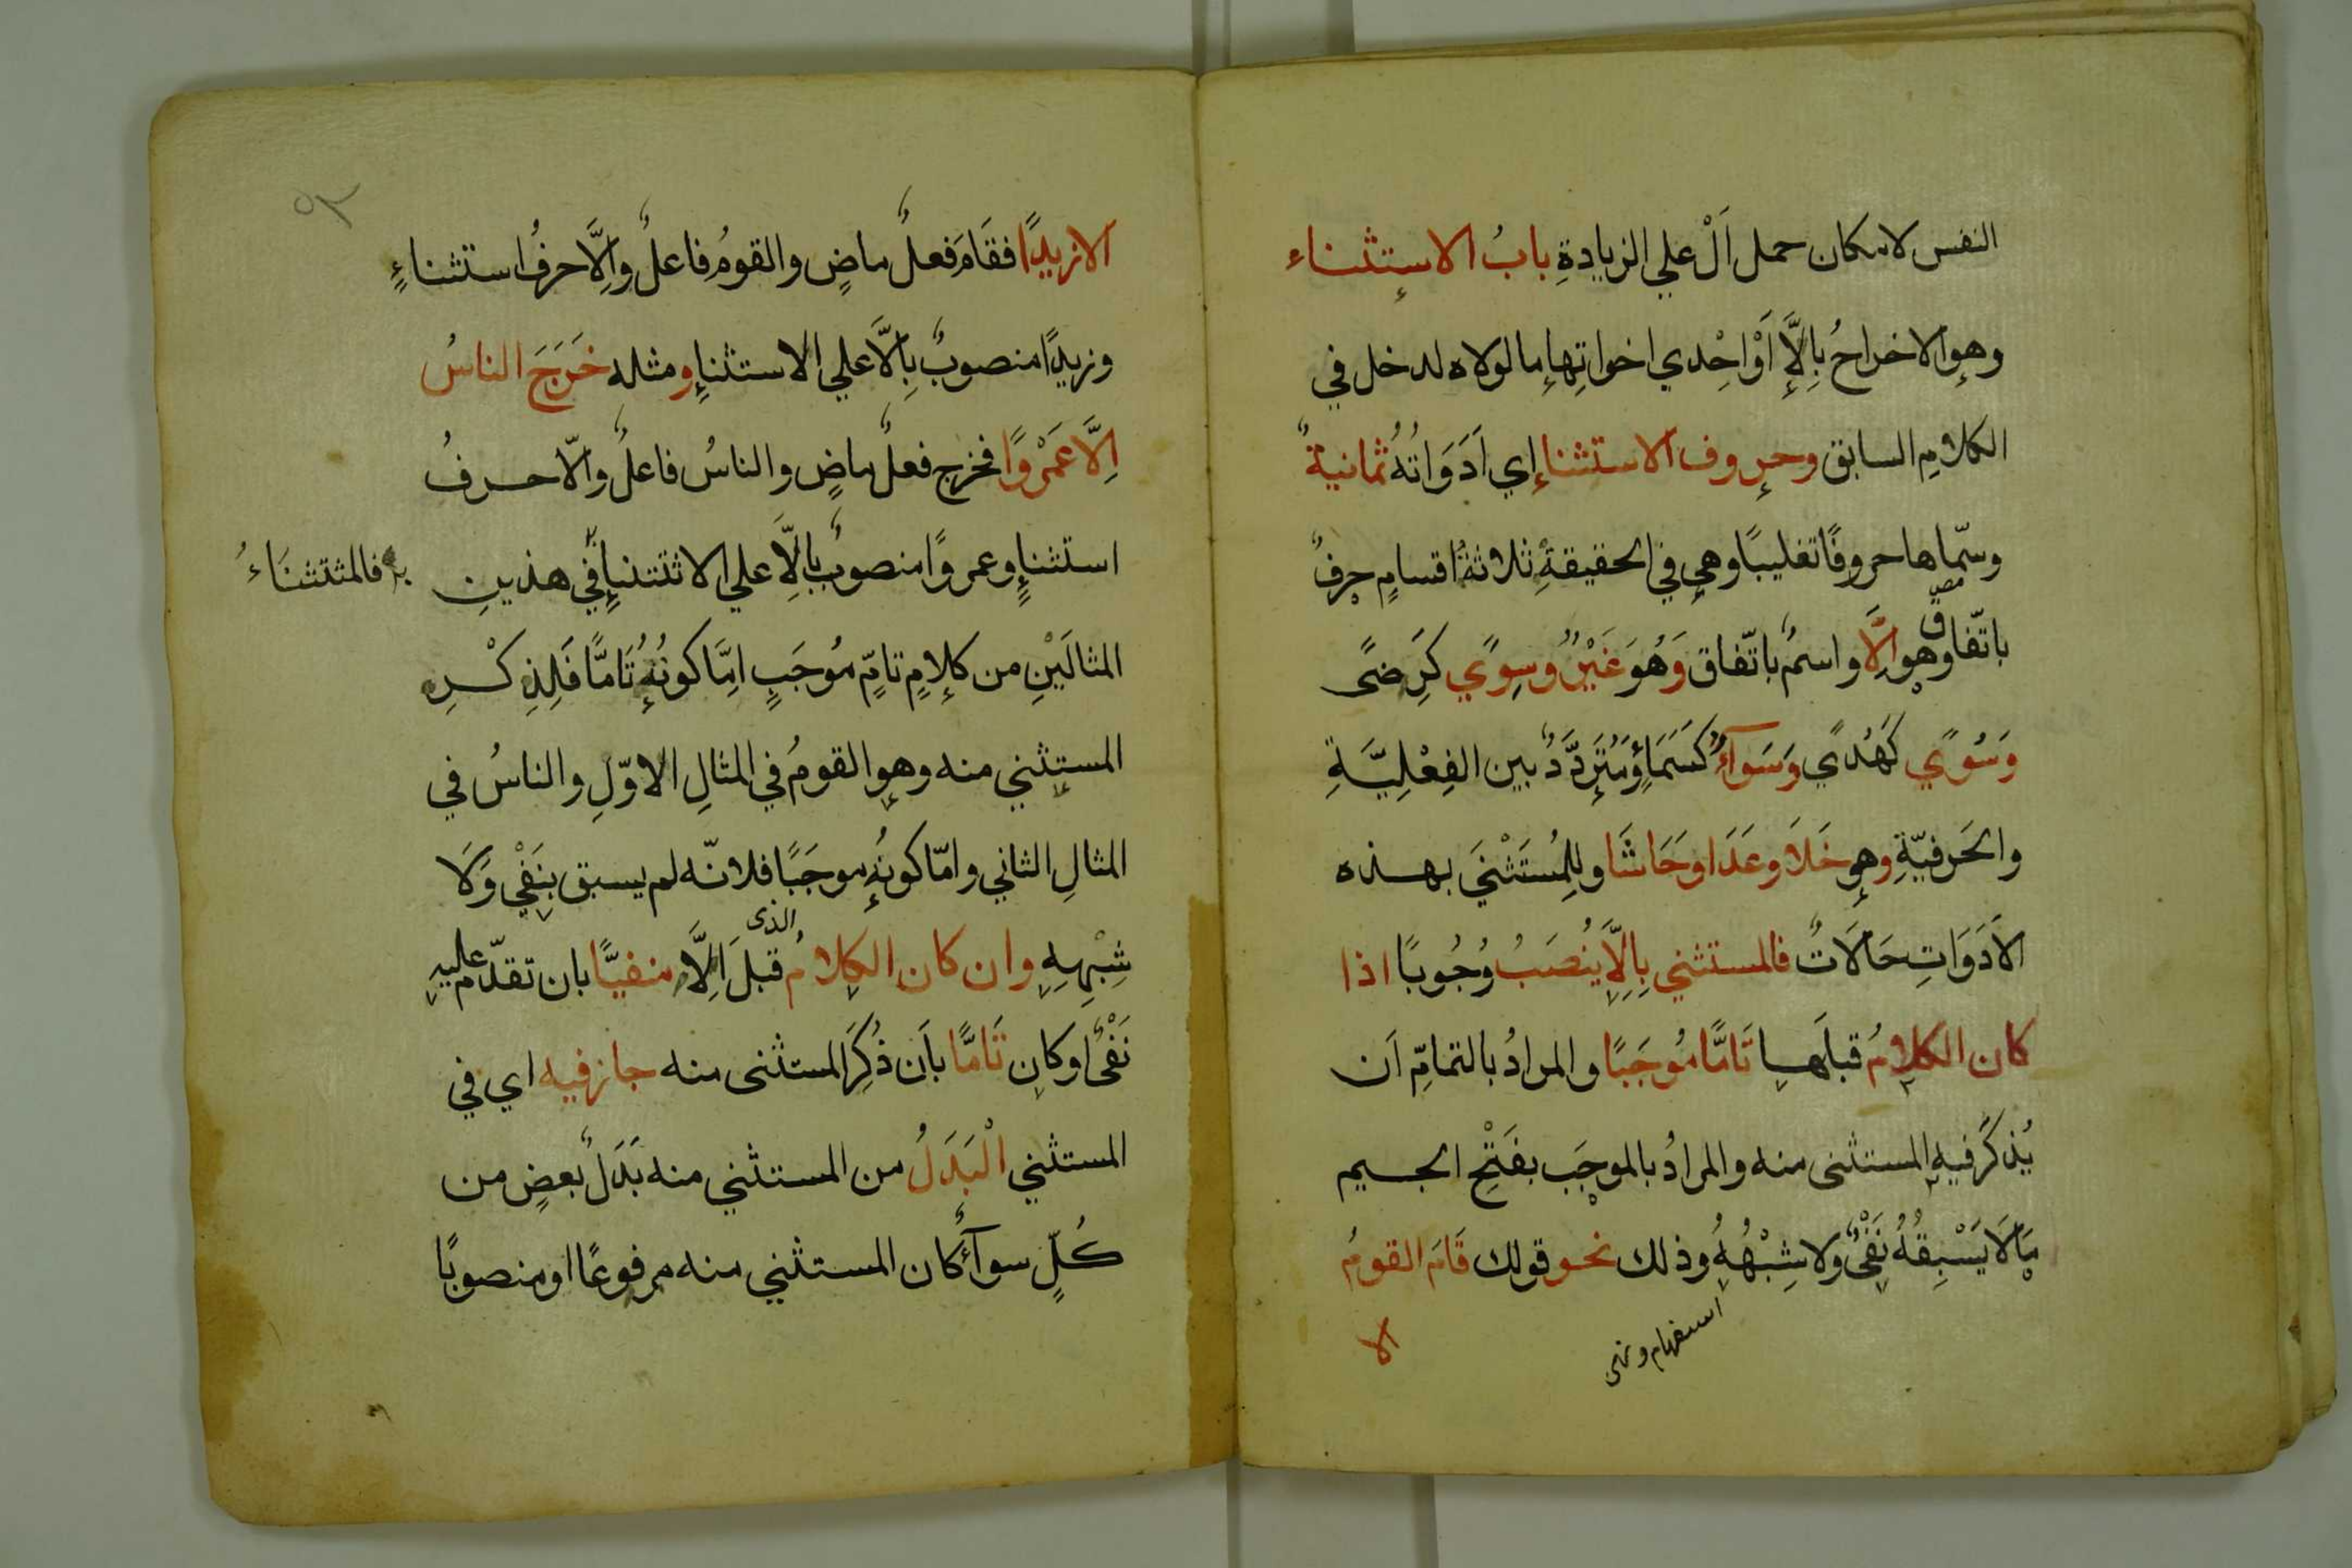 النفس لامكان حمل اَلْ علي الزيادةِ بابُ الاستثناء
وهو الاخراجُ بِاِلَّا اَوْ احْدي اخواتِها ما لولاه لدخل في
الكلامِ السابق وحروف الاستثناءِ اي اَدَوَاتُهُ ثمانيةٌ
وسمّاها حروفًا تغليبًا وهي في الحقيقةِ ثلاثةُ اقسامٍ حرفٌ
باتّفاق وهو اِلَّا واسمٌ باتّفاق وَهُوَ غَيْرُ وسِوًي كَرِضًى
وَسُوًي كَهُدًي وَسَوَآءٌ كَسَمَاءٍ وَمُتَرَدِّدٌ بين الفِعْلِيَّةِ
والحَرفيّةِ وهو خَلَا وعَدَا وَحَاشَا وللِمُسْتَثْنَي بهذه
الاَدَوَاتِ حَالَاتٌ فالمستثني بِاِلَّا يُنْصَبُ وُجُوبًا اذا
كان الكلامُ قبلَها تَامًّا مُوجَبًا والمرادُ بالتمامِّ اَن
يُذكَرَ فيهِ المستثنى منه والمرادُ بالموجَب بفَتْحِ الجيم
مَا لَا يَسْبِقُهُ نَفْىٌ ولا شِبْهُهُ وذلك نحو قولك قَامَ القومُ
استفهام ونهى
الا
الا زيدًا فقَامَ فعلٌ ماضٍ والقومُ فاعلٌ واِلَّا حرفُ استثناءٍ
وزيدًا منصوبٌ بِاِلَّا علي الاستثناءِ ومثله خَرَجَ الناسُ
اِلَّا عَمْروًا فخرج فعلٌ ماضٍ والناسُ فاعلٌ واِلّا حرفُ
استثناءٍ وعمروًا منصوبٌ بِاِلَّا علي الاثتثناءِ في هذينِ
فالمثتثنَاءُ
المثالَيْنِ من كلامٍ تامٍّ مُوجَبٍ امَّا كونُهُ تَامًّا فَلِذِكْرِ
المستثني منه وهو القومُ في المثالِ الاوّلِ والناسُ في
المثالِ الثاني وامّا كونُهُ موجَبًا فلانّه لم يسبق بِنَفْيٍ وَلَا
شِبْهِهِ وان كان الكلامُ الذى قبلَ اِلَّا منفيًّا بان تقدّم عليه
نَفْىٌ وكان تَامًّا بأن ذُكِرَ المستثنى منه جاز فيه اي في
المستثني الْبَدَلُ من المستثني منه بَدَلُ بعضٍ من
كُلٍّ سوآءٌ كان المستثني منه مرفوعًا او منصوبًا